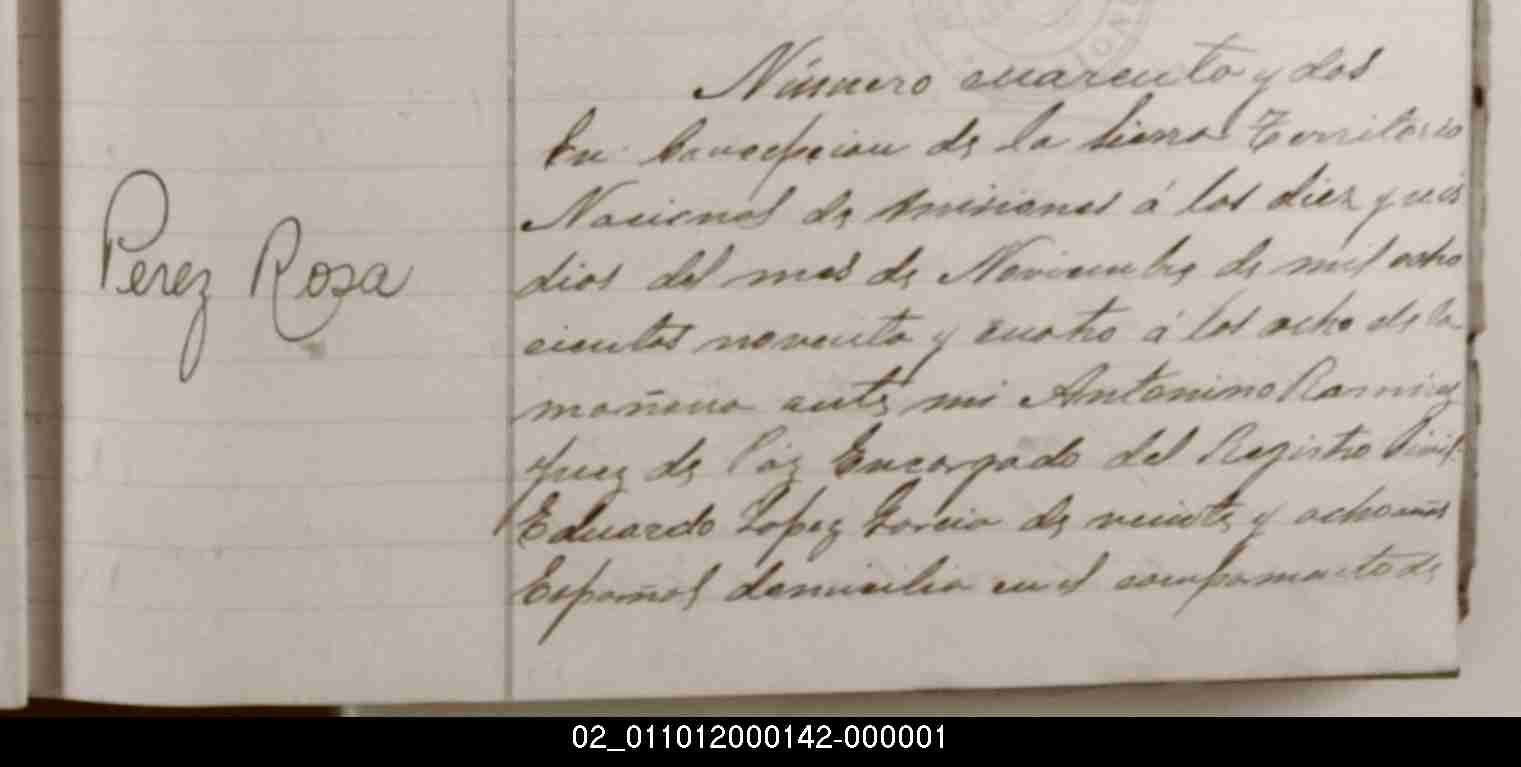 Número cuarenta y dos
En Concepcion de la Sierra Territorio
Nacional de Misiones á los diez y seis
Perez Rosa
dias del mes de Noviembre de mil ocho
cientos noventa y cuatro á las ocho de la
mañana ante mi Antonino Ramirez
Juez de Paz Encargado del Registro Civil
Eduardo Lopez Garcia de veinte y ocho años
Español domicilio en el campamento de
02_011012000142-000001